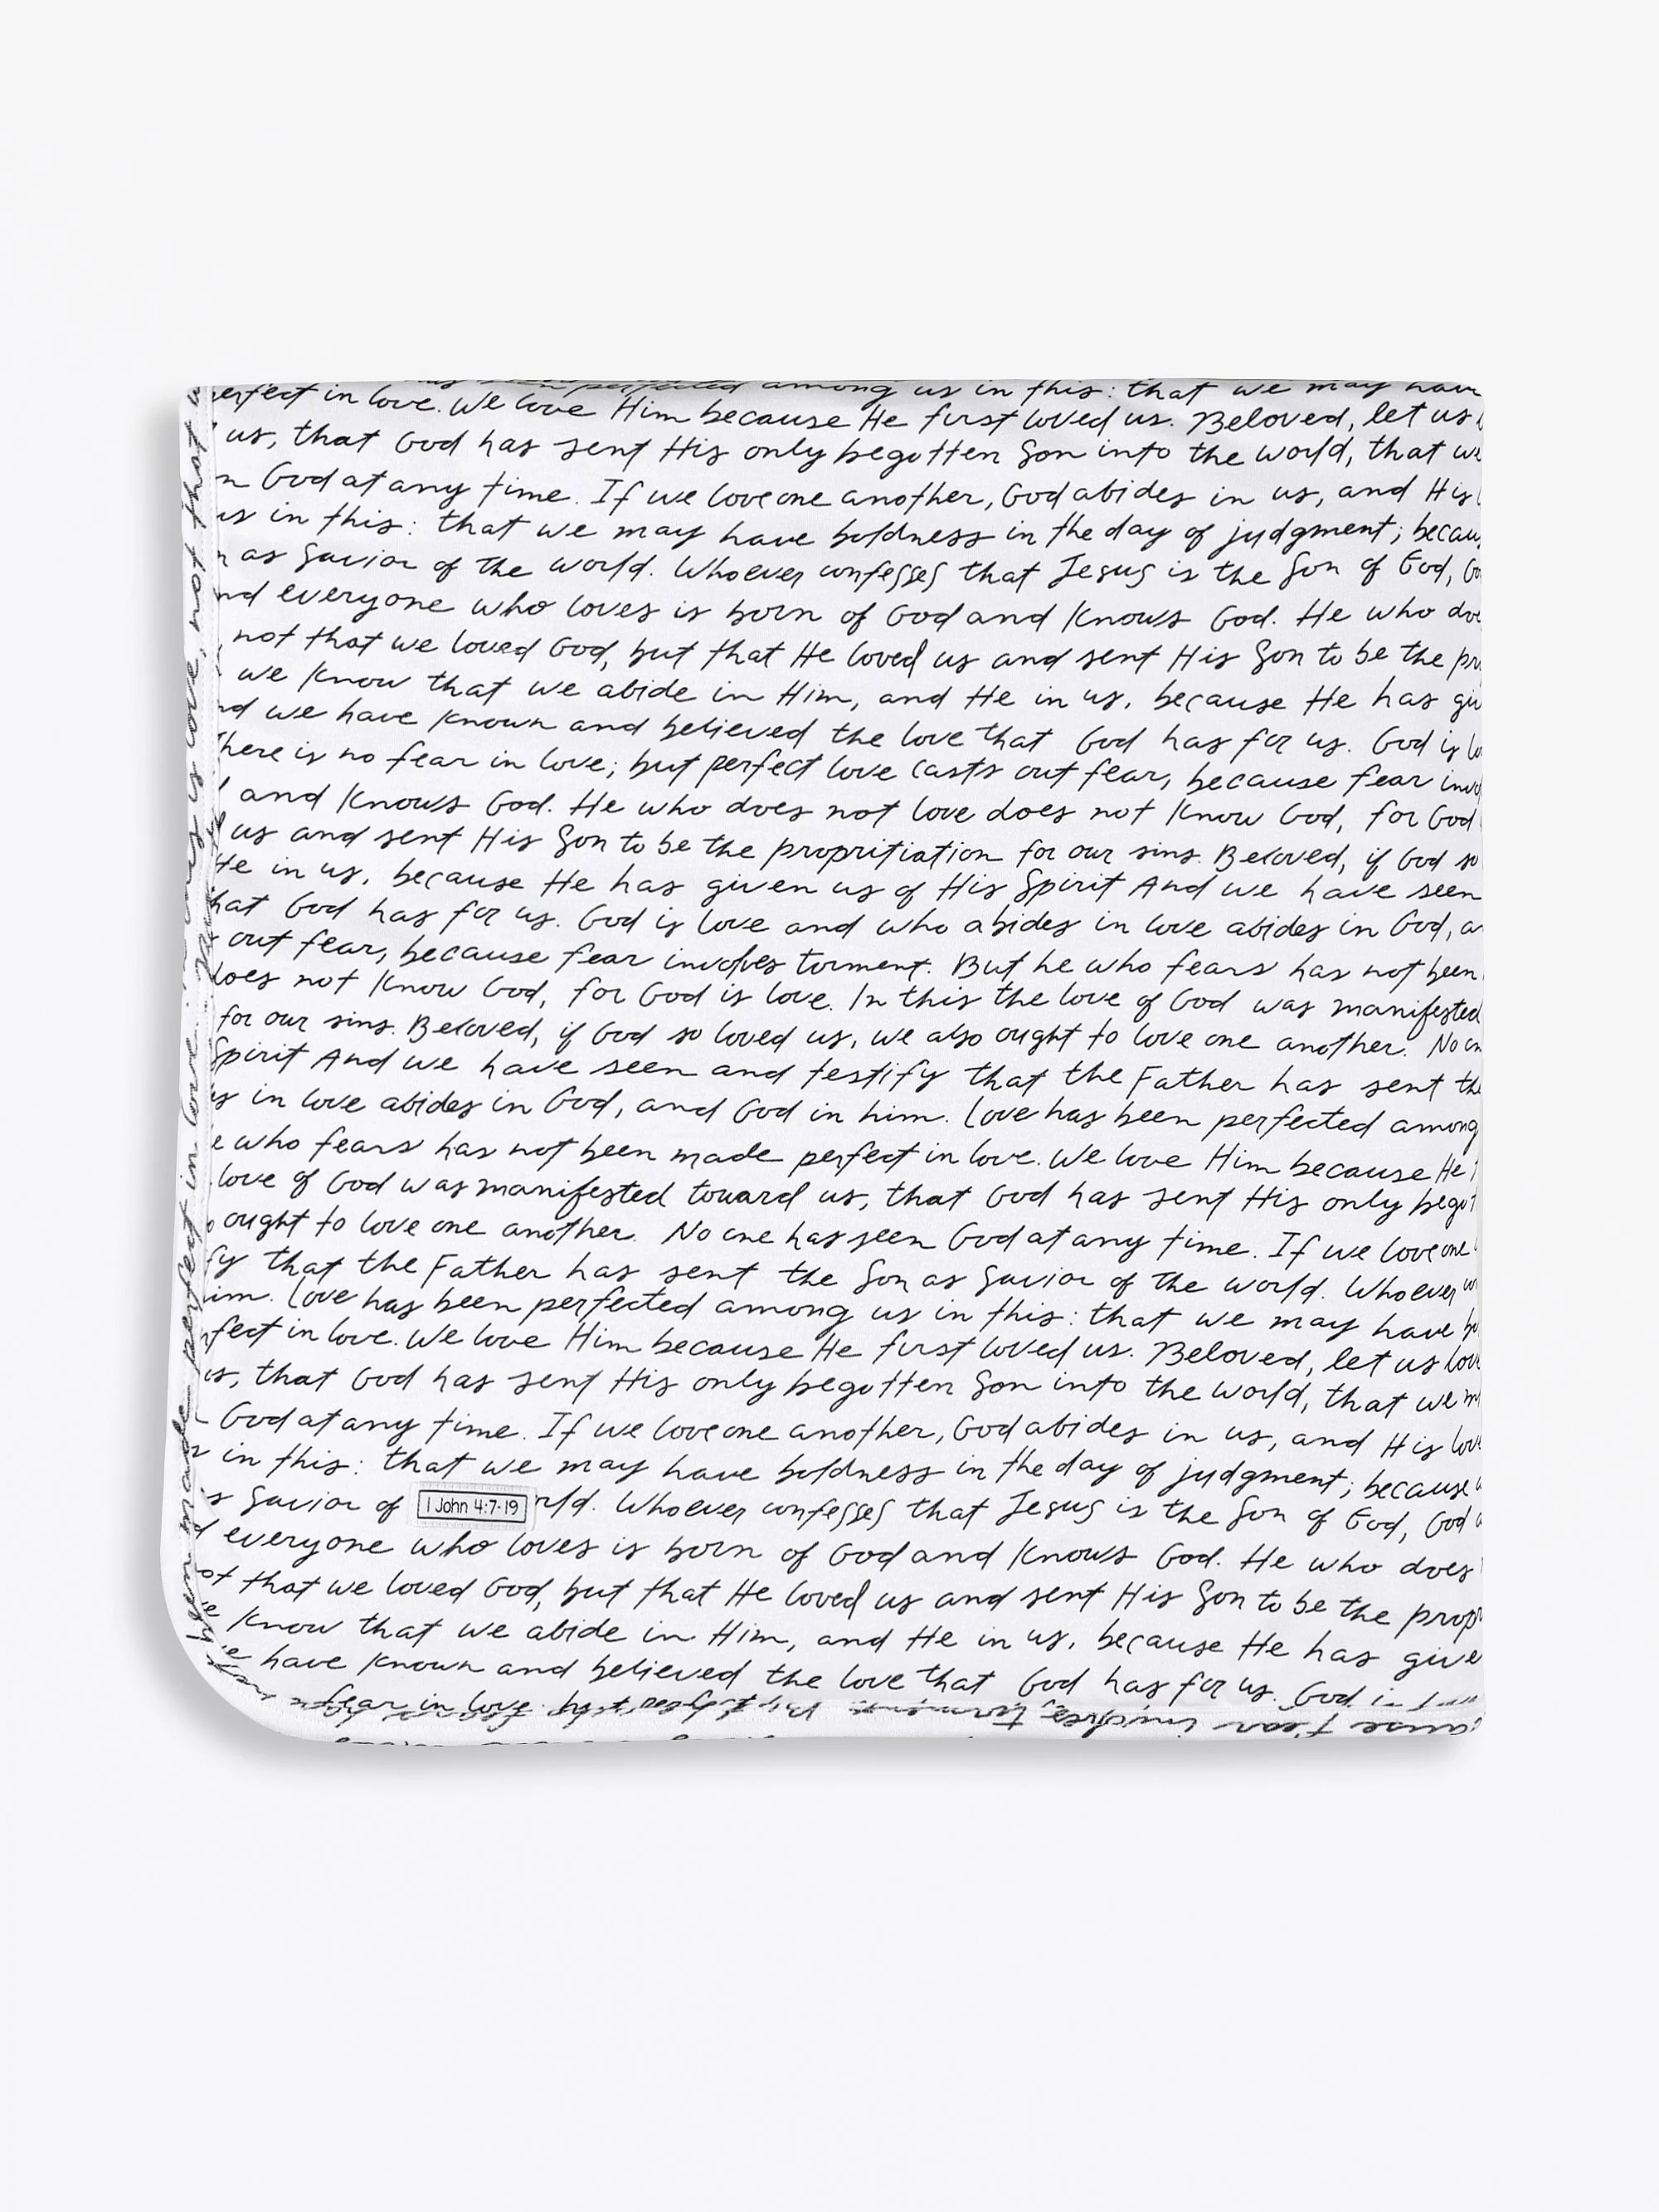 has been perfected among us in this: that we may have
perfect in love. We love Him because He first loved us. Beloved, let us
us, that God has sent His only begotten Son into the world, that we
God at any time. If we love one another, God abides in us, and His
us in this: that we may have boldness in the day of judgment; becau
as Savior of the world. Whoever confesses that Jesus is the Son of God, Go
nd everyone who loves is born of God and knows God. He who doe
not that we loved God, but that He loved us and sent His Son to be the pr
we know that we abide in Him, and He in us, because He has giv
nd we have known and believed the love that God has for us. God is lo
There is no fear in love; but perfect love casts out fear, because fear invo
and knows God. He who does not love does not know God, for God
us and sent His Son to be the propritiation for our sins. Beloved, if God so
He in us, because He has given us of His Spirit And we have seen
hat God has for us. God is love and who abides in love abides in God, a
out fear, because fear involves torment. But he who fears has not been
does not know God, for God is love. In this the love of God was manifested
for our sins. Beloved, if God so loved us, we also ought to love one another. No on
Spirit And we have seen and testify that the Father has sent the
es in love abides in God, and God in him. Love has been perfected among
e who fears has not been made perfect in love. We love Him because He
love of God was manifested toward us, that God has sent His only begot
ought to love one another. No one has seen God at any time. If we love one
fy that the Father has sent the Son as Savior of the world. Whoever
him. Love has been perfected among us in this: that we may have bo
rfect in love. We love Him because He first loved us. Beloved, let us love
us, that God has sent His only begotten Son into the world, that we m
God at any time. If we love one another, God abides in us, and His love
in this: that we may have boldness in the day of judgment; because
s Savior of rld. Whoever confesses that Jesus is the Son of God, God
1 John 4:7-19
d everyone who loves is born of God and knows God. He who does
ot that we loved God, but that He loved us and sent His Son to be the prop
we know that we abide in Him, and He in us, because He has give
e have known and believed the love that God has for us. God is
fear in love; but perfect
been made perfect in love.
love, not that